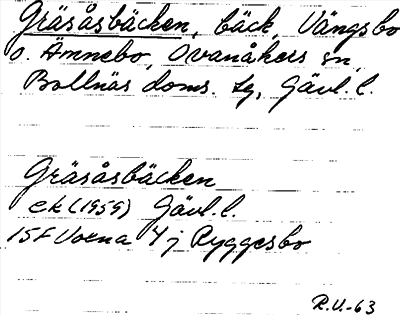 Gräsåsbäcken, bäck, Vängsbo
o. Ämnebo, Ovanåkers sn,
Bollnäs doms. tg, Gävl. l.
Gräsåsbäcken
ek (1959) Gävl. l.
15F Voxna 4 j Ryggesbo
R.U.-63